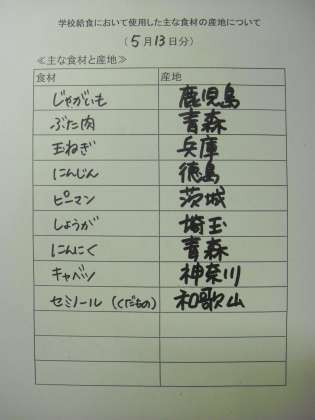 学校給食において使用した主な食材の産地について
（5月13日分）
≪主な食材と産地≫
食材 産地
じゃがいも 鹿児島
ぶた肉 青森
玉ねぎ 兵庫
にんじん 徳島
ピーマン 茨城
しょうが 埼玉
にんにく 青森
キャベツ 神奈川
セミノール（くだもの） 和歌山